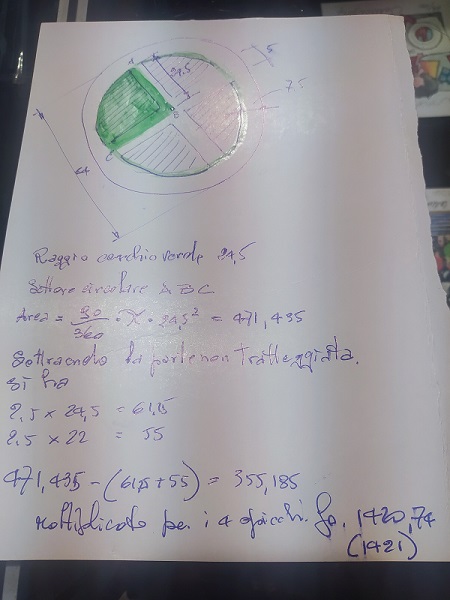 5
24,5
7.5
A
B
C
64
Raggio cerchio verde 24,5
Settore circolare ABC
Area = 90/360 · π · 24,5² = 471,435
Sottraendo la parte non Tratteggiata.
si ha
2,5 x 24,5 = 61,15
2.5 x 22 = 55
471,435 - (61,5 + 55) = 355,185
Moltiplicato per i 4 spicchi fa. 1420,74
(1421)